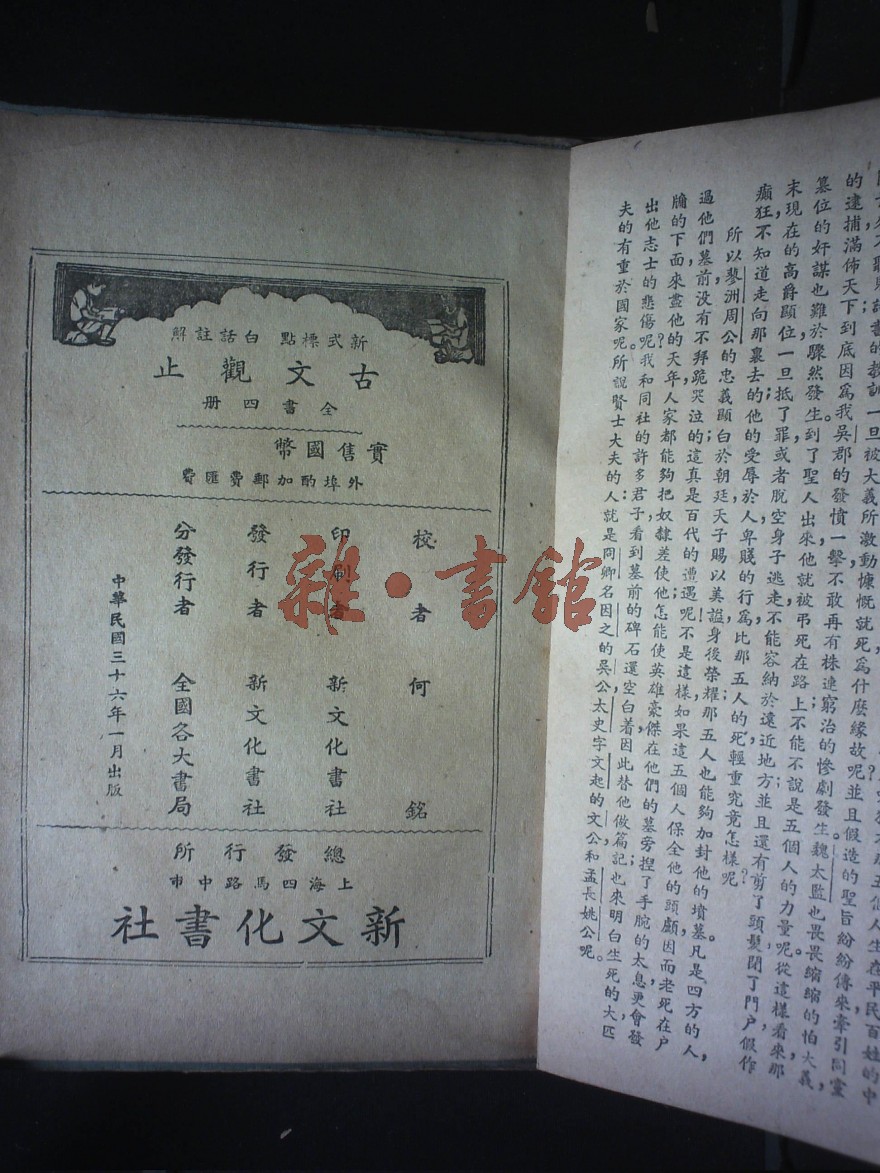 人生在平民百姓的中
教訓一旦被大義所激動慷慨就死爲什麼緣故呢?並且假造的聖旨紛紛傳來牽引同黨
的逮捕滿佈天下到底因爲我吳郡的發憤一擊不敢再有株連窮治的慘劇發生。魏太監也畏畏縮縮的怕大義,
篡位的奸謀也難於驟然發生;到了聖人出來他就被弔死在路上不能不說是五個人的力量呢。從這樣看來那
末,現在的高爵顯位一旦抵了罪,或者脫空身子逃走不能容納於遠近地方;並且還有剪了頭髮閉了門戶,假作
癲狂,不知道走向那裏去的;他的受辱於人卑賤的行爲,比那五人的死輕重究竟怎樣呢?
所以蓼洲周公的忠義顯白於朝廷,天子賜以美謚,身後榮耀;那五人也能夠加封他的墳墓。凡是四方的人,
過他們墓前沒有不拜跪哭泣的;這真是百代的遭遇呢。不是這樣,如果這五個人保全他的頭顱,因而老死在户
牖的下面來盡他的天年,人家都能夠把奴隸差使他,怎能使英雄豪傑在他們的墓旁,捏了手腕的太息更會發
出他志士的悲傷呢?我和同社的許多君子看到墓前的碑石還空白着,因此替他做篇記;也來明白生死的大,匹
夫的有重於國家呢。所說賢士大夫的人:就是冏卿名因之的吳公,太史字文起的文公,和孟長姚公呢。
新式標點 白話註解
古文觀止
全書四册
實售國幣
外埠酌加郵費匯費
校者 何銘
印刷者 新文化書社
發行者 新文化書社
分發行者 全國各大書局
中華民國三十六年一月出版
總發行所
上海四馬路中市
新文化書社
雜·書館